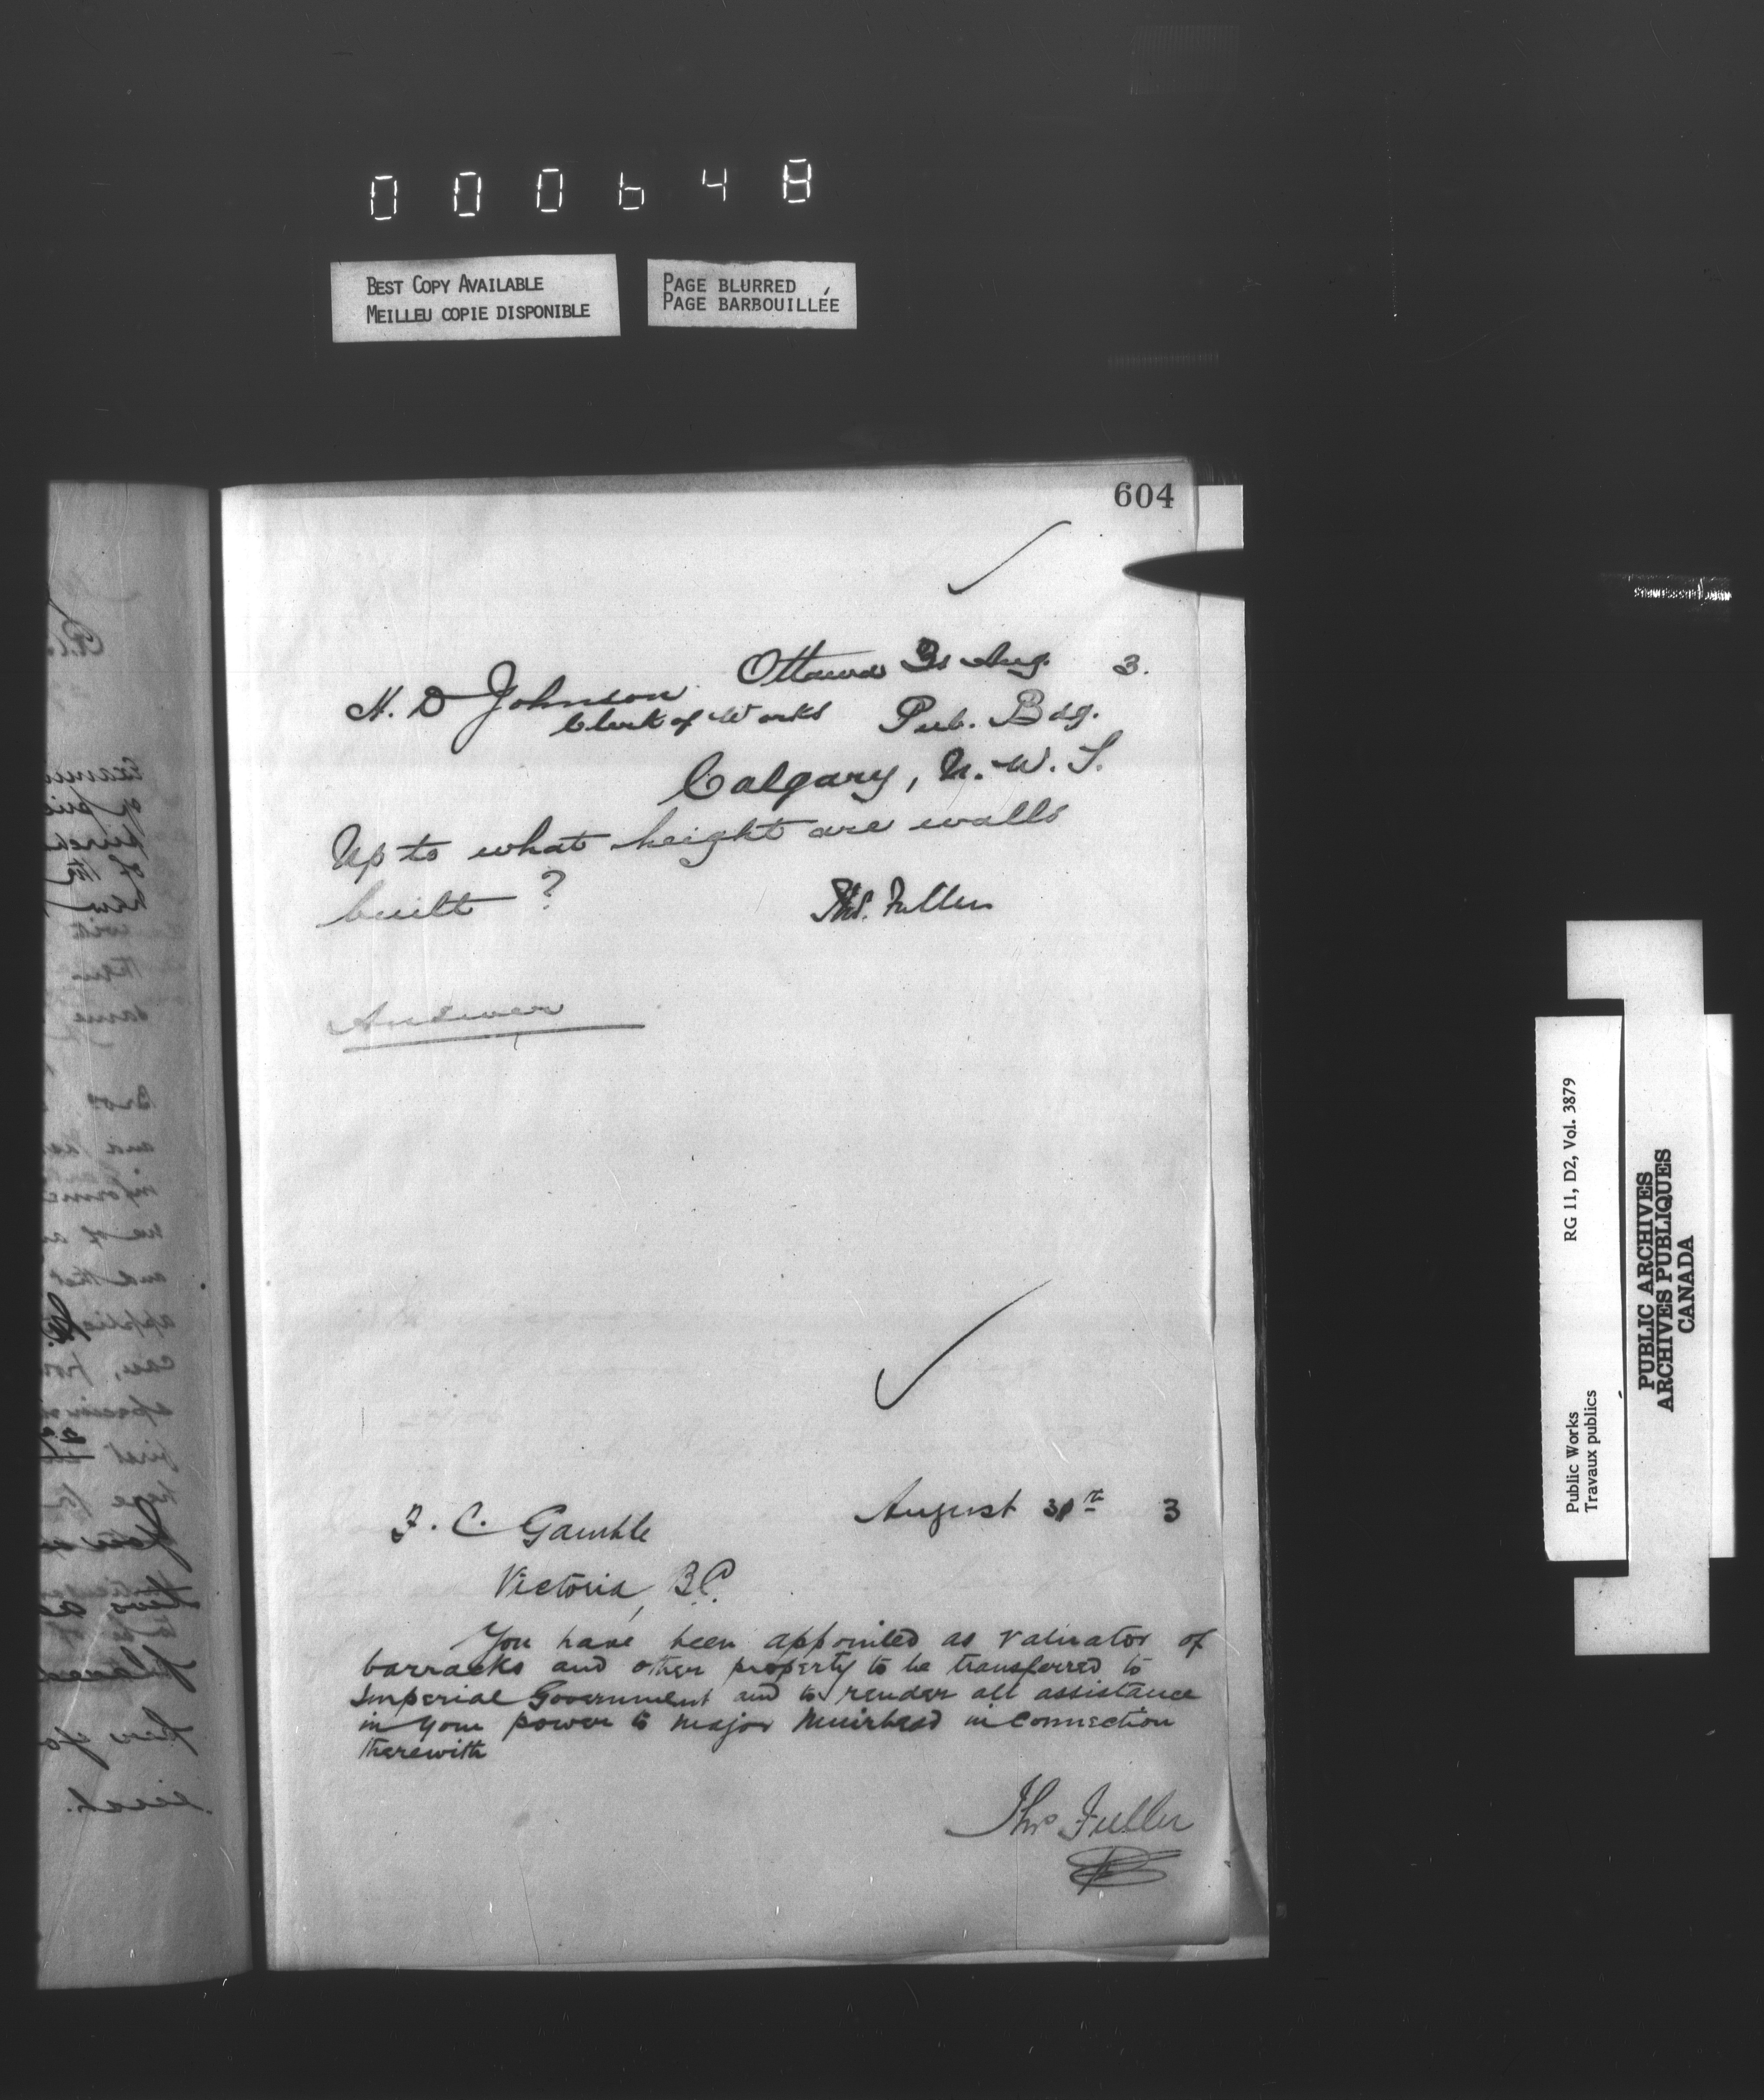 000648
BEST COPY AVAILABLE
MEILLEU COPIE DISPONIBLE
PAGE BLURRED
PAGE BARBOUILLÉE
604
Ottawa Aug. 3.
H. D Johnson
Clerk of Works Pub. Bdg.
Calgary, N. W. T.
Up to what height are walls
built ?
Thos. Fuller
Answer
August 3
F. C. Gamble
Victoria, B.C.
You have been appointed as valuator of
barracks and other property to be transferred to
Imperial Government and to render all assistance
in your power to Major Muirhead in connection
therewith
Thos Fuller
Public Works
Travaux publics
RG 11, D2, Vol. 3879
PUBLIC ARCHIVES
ARCHIVES PUBLIQUES
CANADA